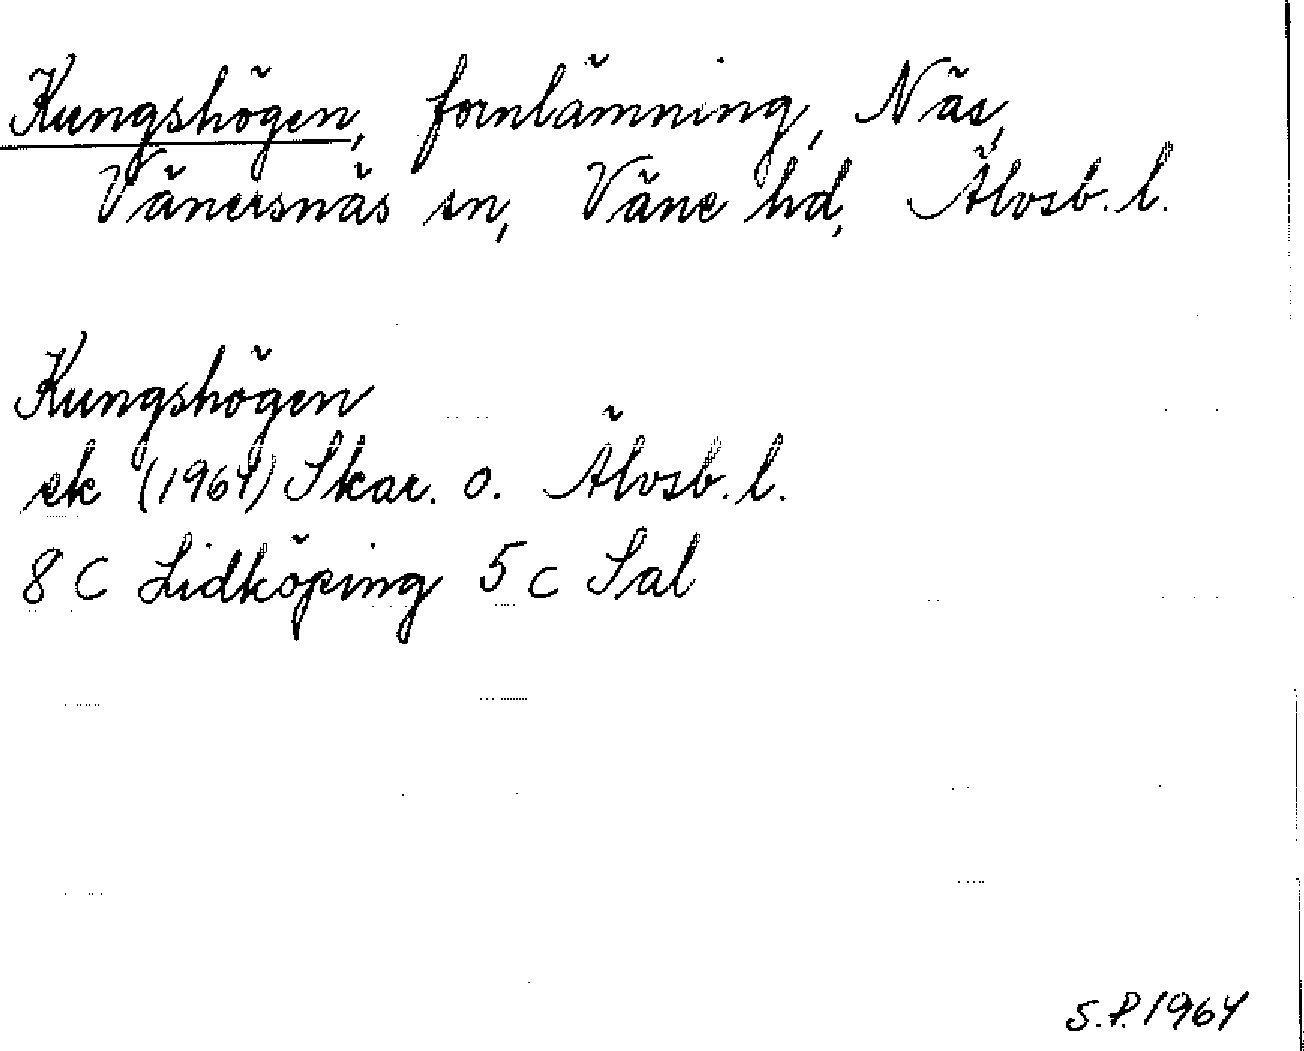 Kungshögen, fornlämning, Näs,
Vänersnäs sn, Väne hd, Älvsb. l.
Kungshögen
ek (1964) Skar. o. Älvsb. l.
8 C Lidköping 5 c Sal
S.P. 1964